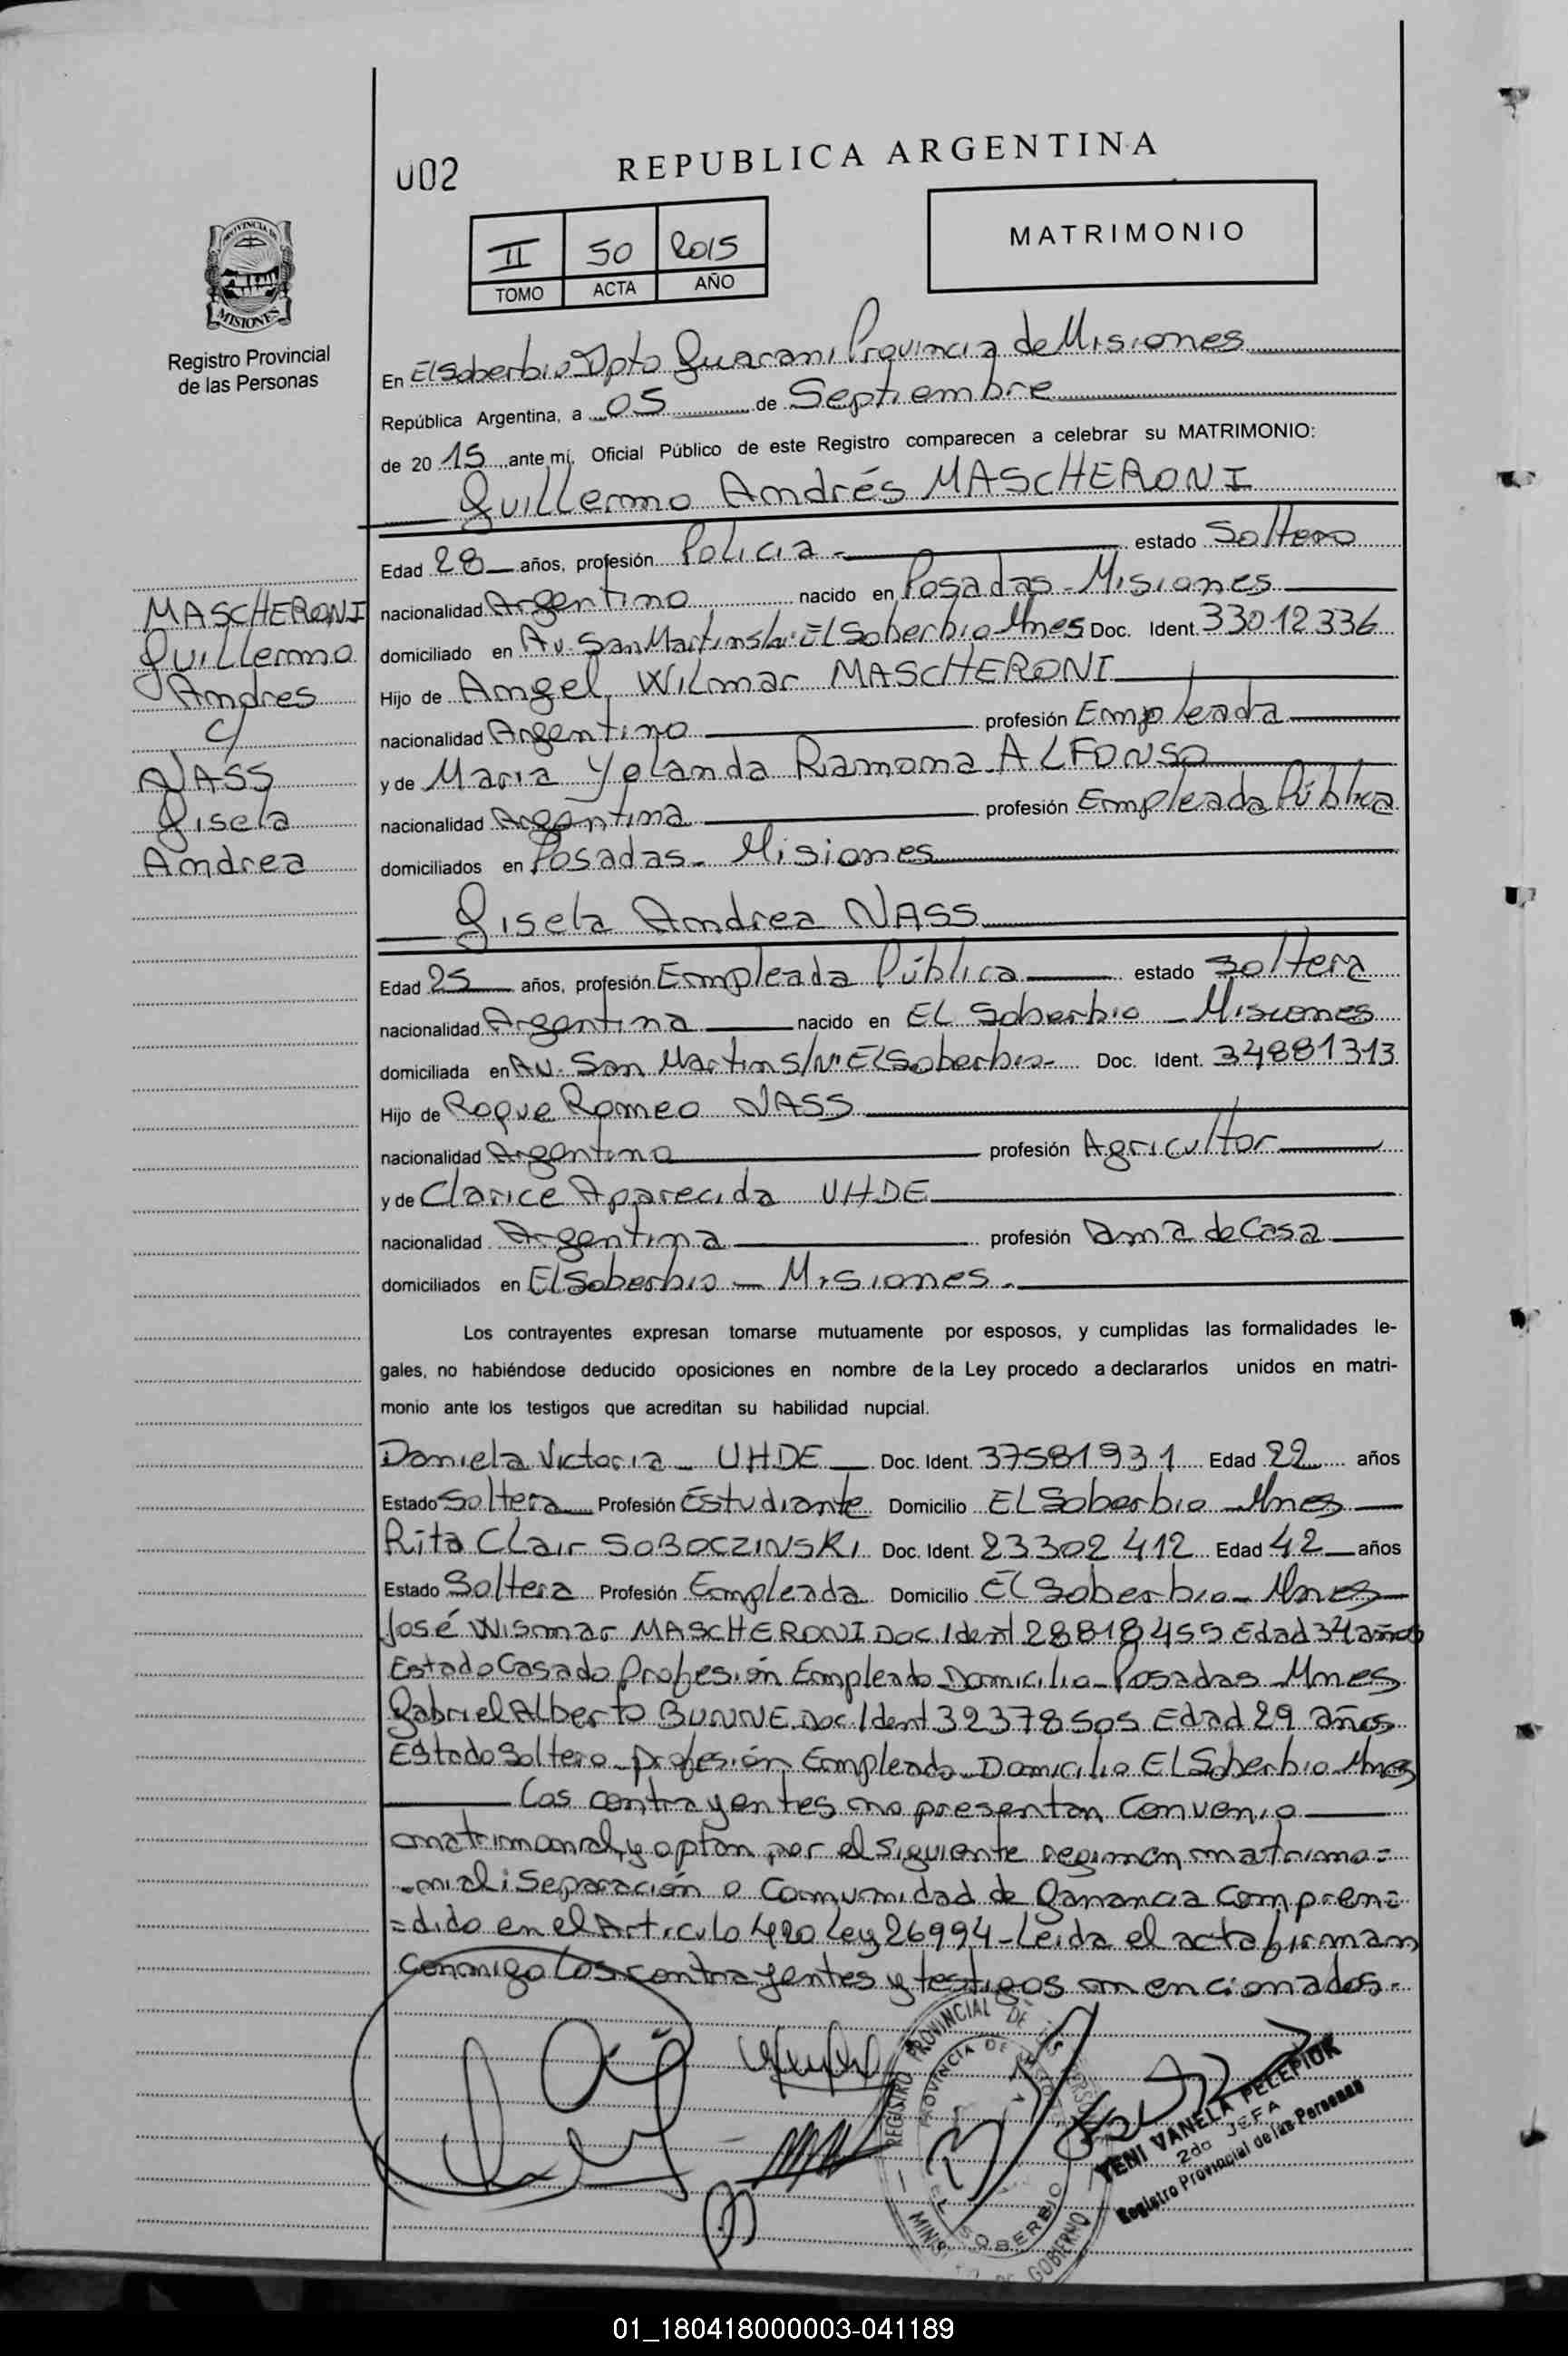 002
REPUBLICA ARGENTINA
II 50 2015
TOMO ACTA AÑO
MATRIMONIO
PROVINCIA DE
MISIONES
Registro Provincial
de las Personas
En El Soberbio Dpto Guarani Provincia de Misiones
República Argentina, a 05 de Septiembre
de 2015 ante mí, Oficial Público de este Registro comparecen a celebrar su MATRIMONIO:
Guillermo Andrés MASCHERONI
Edad 28 años, profesión Policia estado Soltero
nacionalidad Argentino nacido en Posadas - Misiones
domiciliado en Av. San Martin s/n: El Soberbio Mnes Doc. Ident. 33012336
Hijo de Angel Wilmar MASCHERONI
nacionalidad Argentino profesión Empleada
y de Maria Yolanda Ramona ALFONSO
nacionalidad Argentina profesión Empleada Pública
domiciliados en Posadas - Misiones
MASCHERONI
Guillermo
Andres
c/
NASS
Gisela
Andrea
Gisela Andrea NASS
Edad 25 años, profesión Empleada Pública estado Soltera
nacionalidad Argentina nacido en El Soberbio - Misiones
domiciliada en Av. San Martin S/Nº El Soberbio - Doc. Ident. 34881313
Hijo de Roque Romeo NASS
nacionalidad Argentino profesión Agricultor
y de Clarice Aparecida UHDE
nacionalidad Argentina profesión Ama de Casa
domiciliados en El Soberbio - Misiones.
Los contrayentes expresan tomarse mutuamente por esposos, y cumplidas las formalidades le-
gales, no habiéndose deducido oposiciones en nombre de la Ley procedo a declararlos unidos en matri-
monio ante los testigos que acreditan su habilidad nupcial.
Daniela Victoria - UHDE Doc. Ident. 37581931 Edad 22 años
Estado Soltera Profesión Estudiante Domicilio El Soberbio - Mnes
Rita Clair SOBOCZINSKI Doc. Ident. 23302412 Edad 42 años
Estado Soltera Profesión Empleada Domicilio El Soberbio - Mnes
José Wismar MASCHERONI Doc. Ident 28818455 Edad 34 años
Estado Casado Profesión Empleado Domicilio Posadas Mnes
Gabriel Alberto BUNNE Doc. Ident 32378505 Edad 29 años
Estado Soltero Profesión Empleado Domicilio El Soberbio Mnes
Los contrayentes no presentan Convenio
matrimonial, y optan por el siguiente regimen matrimo=
=nial: Separación o Comunidad de ganancia Compren=
=dido en el Articulo 420 Ley 26994 - Leida el acta firman
conmigo los contrayentes y testigos mencionados.
REGISTRO PROVINCIAL DE LAS PERSONAS
PROVINCIA DE
EL SOBERBIO
GOBIERNO
YENI VANELA PELEPIOK
2da JEFA
Registro Provincial de las Personas
01_180418000003-041189